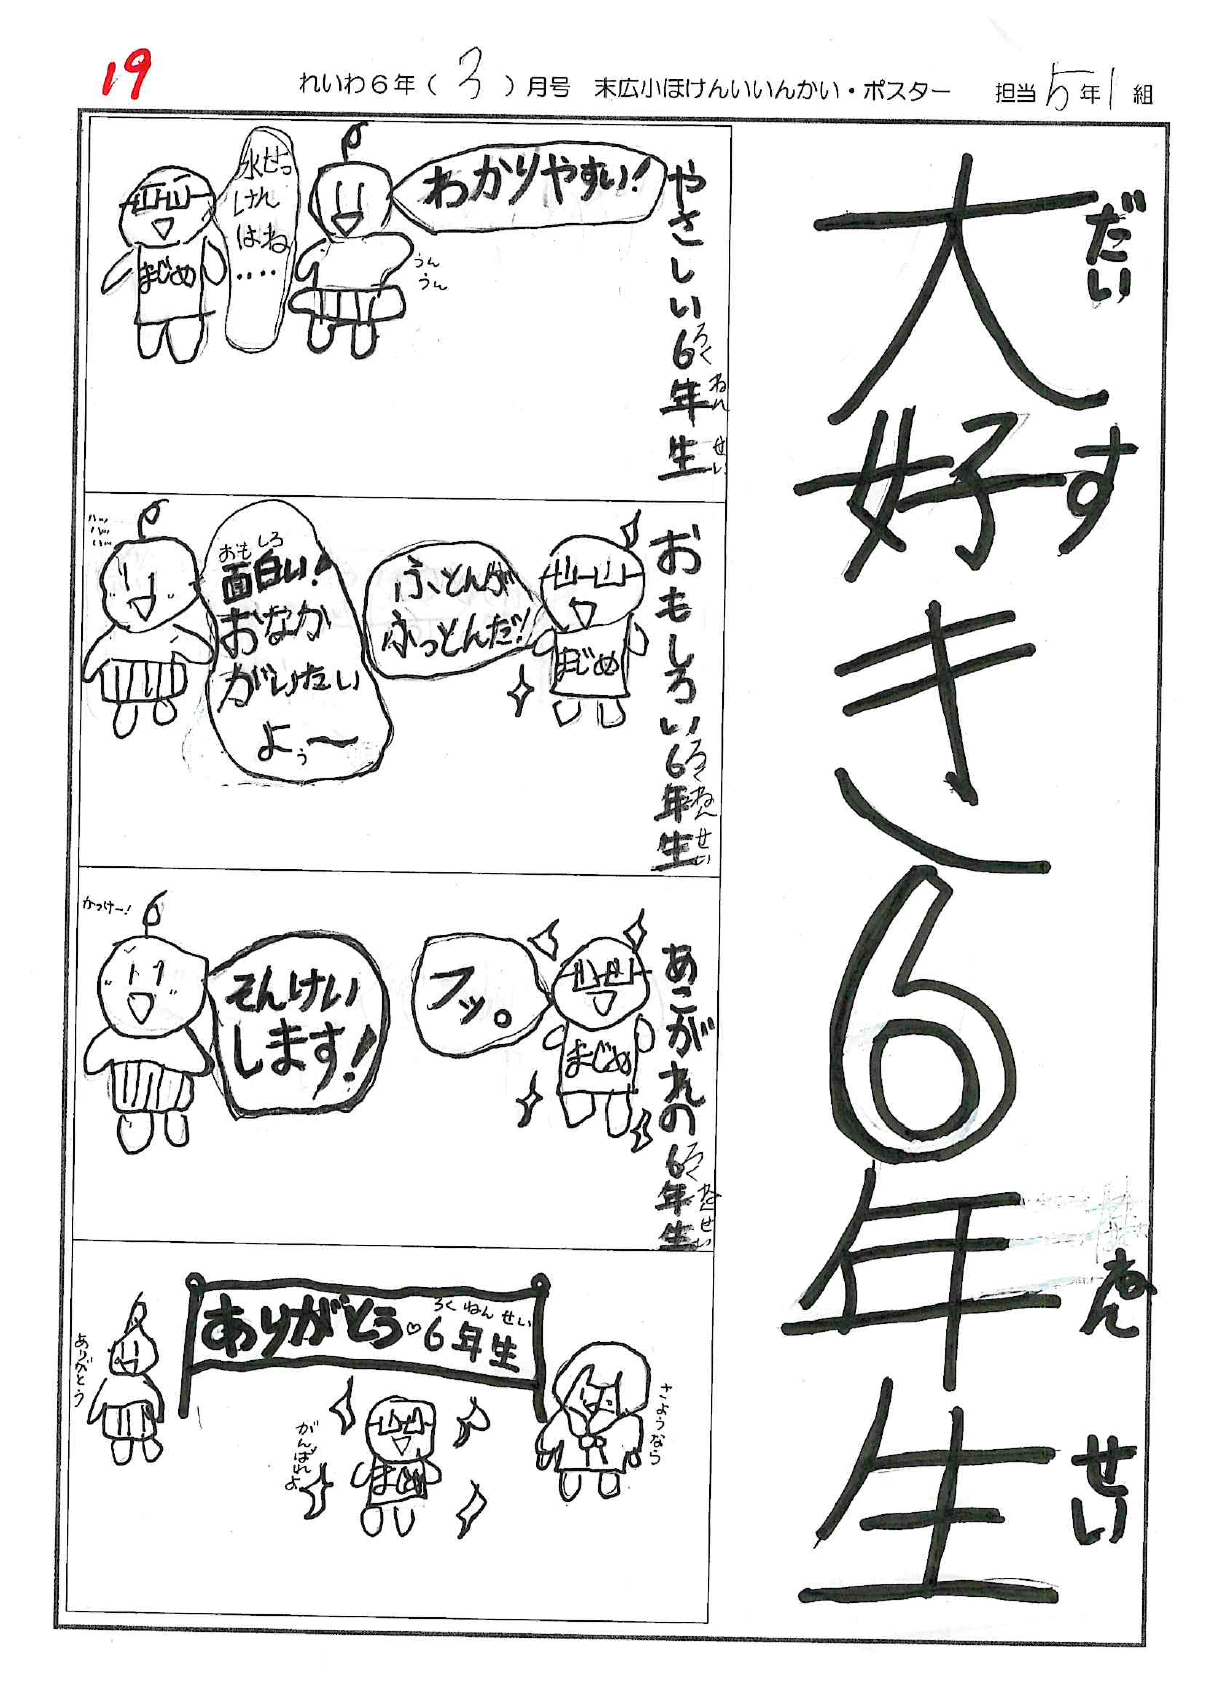 19
れいわ6年(3)月号 末広小ほけんいいんかい・ポスター 担当5年1組
大好き6年生
だい
す
ねん
せい
やさしい6年生
ろく
ねん
せい
わかりやすい!
うん
うん
水せっ
けん
はね
....
まじめ
おもしろい6年生
ろく
ねん
せい
ふとんが
ふっとんだ!
まじめ
おもしろ
面白い!
おなか
がいたい
よぅ〜
あこがれの6年生
ろく
ねん
せい
フッ。
まじめ
そんけい
します!
かっけー!
ろくねんせい
ありがとう♡6年生
さようなら
がんばれよ
まじめ
ありがとう